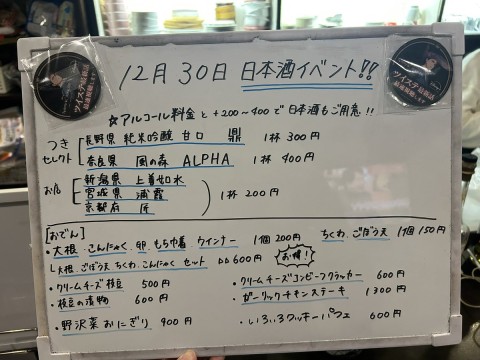 12月30日 日本酒イベント!!
☆アルコール料金と+200~400で日本酒もご用意!!
つき セレクト
長野県 純米吟醸 甘口 鼎 1杯 300円
奈良県 風の森 ALPHA 1杯 400円
お店
新潟県 上善如水
宮城県 浦霞
京都府 匠
1杯 200円
[おでん]
・大根、こんにゃく、卵、もち巾着 ウインナー 1個 200円 ちくわ、ごぼう天 1個 150円
└大根、ごぼう天 ちくわ、こんにゃく セット 600円 お得!
・クリームチーズ枝豆 500円
・クリームチーズコンビーフクラッカー 600円
・枝豆の漬物 600円
・ガーリックチキンステーキ 1300円
・野沢菜おにぎり 900円
・いろいろクッキーパフェ 600円
ツイステ最新話
ツイステ最新話